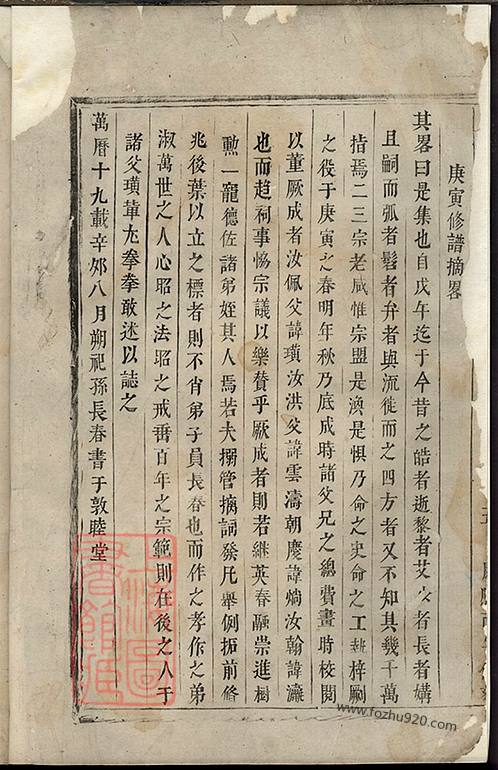 庚寅修譜摘畧
其畧曰是集也自戊午迄于今昔之皓者逝黎者艾少者長者媾
且嗣而孤者髫者弁者與流徙而之四方者又不知其幾千萬
指焉二三宗老咸惟宗盟是渙是惧乃命之史命之工錤梓嗣
之役于庚寅之春明年秋乃底成時諸父兄之總費畫時校閱
以董厥成者汝佩父諱璜汝洪父諱雲濤朝慶諱熵汝翰諱瀛
也而趋祠事恊宗議以樂賛乎厥成者則若継英春融崇進樹
勲一寵德佐諸弟姪其人焉若夫搦管摛詞發凡舉例拓前脩
兆後葉以立之標者則不肖弟子員長春也而作之孝作之弟
淑萬世之人心昭之法昭之戒畨百年之宗範則在後之人于
諸父璜軰尤拳拳敢述以誌之
萬曆十九載辛夘八月朔祀孫長春書于敦睦堂
www.fozhu920.com